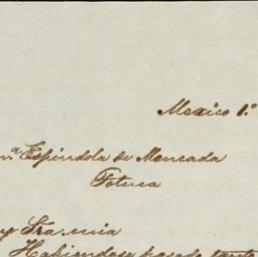 Mexico 1.º
n.ª Espindola de Moncada
Toluca
y Sra. mia
Habiendose pasado tanto